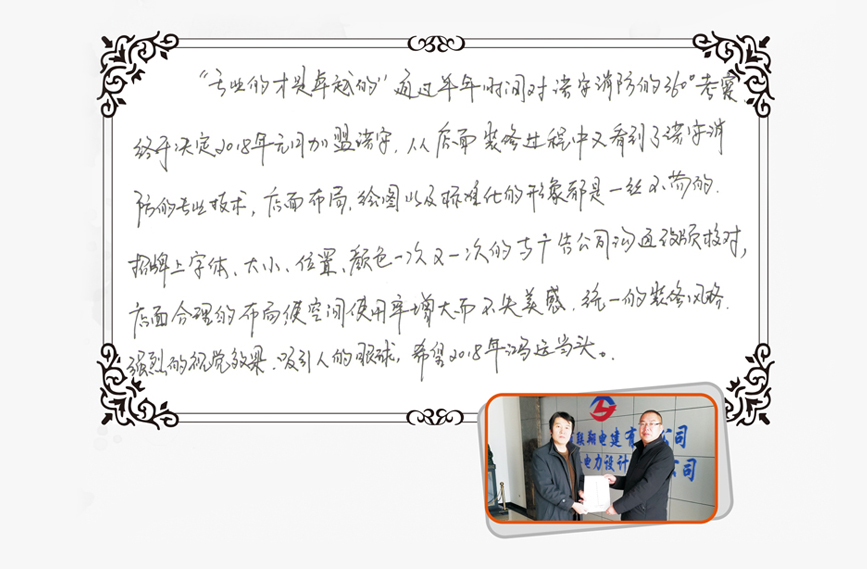 “专业的才是卓越的”通过半年时间对诺宇消防的360°考察,
终于决定2018年元月加盟诺宇,从店面装修过程中又看到了诺宇消
防的专业技术,店面布局、绘图以及标准化的形象都是一丝不苟的.
招牌上字体、大小、位置、颜色一次又一次的与广告公司沟通效顾核对,
店面合理的布局使空间使用率增大而不失美感.统一的装修风格.
强烈的视觉效果.吸引人的眼球,希望2018年鸿运当头。
联翔电建有 公司
电力设计 公司